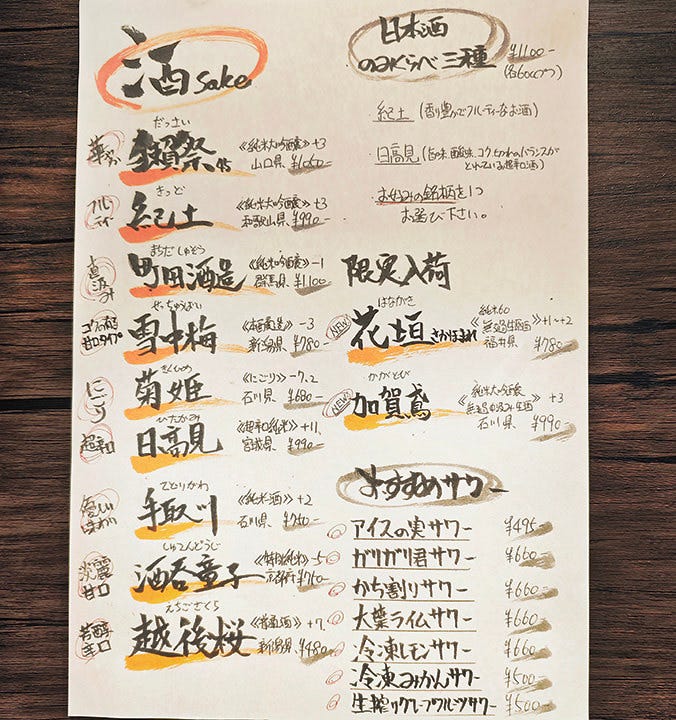 酒 sake
だっさい
華やか
獺祭 45
《純米大吟醸》+3
山口県 ¥1060-
きっど
フルーティ
紀土
《純米大吟醸》+3
和歌山県 ¥990-
まちだしゅぞう
直汲み
町田酒造
《純米吟醸》-1
群馬県 ¥1100
せっちゅうばい
甘口タイプ
雪中梅
《本醸造》-3
新潟県 ¥780-
きくひめ
にごり
菊姫
《にごり》-7.2
石川県 ¥680-
ひたかみ
超辛口
日高見
《超辛口純米》+11
宮城県 ¥990-
てどりかわ
優しい味わい
手取川
《純米酒》+2
石川県 ¥750-
しゅてんどうじ
淡麗甘口
酒呑童子
《特別純米》-5
京都府 ¥760-
えちごさくら
芳醇辛口
越後桜
《普通酒》+7
新潟県 ¥480-
日本酒
のみくらべ三種 ¥1100-
(各60ccずつ)
紀土 (香り豊かでフルーティーなお酒)
日高見 (旨味、酸味、コク、キレのバランスが
とれている超辛口酒)
お好みの銘柄を1つ
お選び下さい。
限定入荷
はながき
NEW
花垣 さかほまれ
純米60
《無濾過生原酒》+1~+2
福井県 ¥780-
かがとび
NEW
加賀鳶
純米大吟醸
+3
石川県 ¥990-
おすすめサワー
アイスの実サワー ¥495-
ガリガリ君サワー ¥660-
かち割りサワー ¥660-
大葉ライムサワー ¥660-
冷凍レモンサワー ¥660-
冷凍みかんサワー ¥500-
生搾りグレープフルーツサワー ¥500-